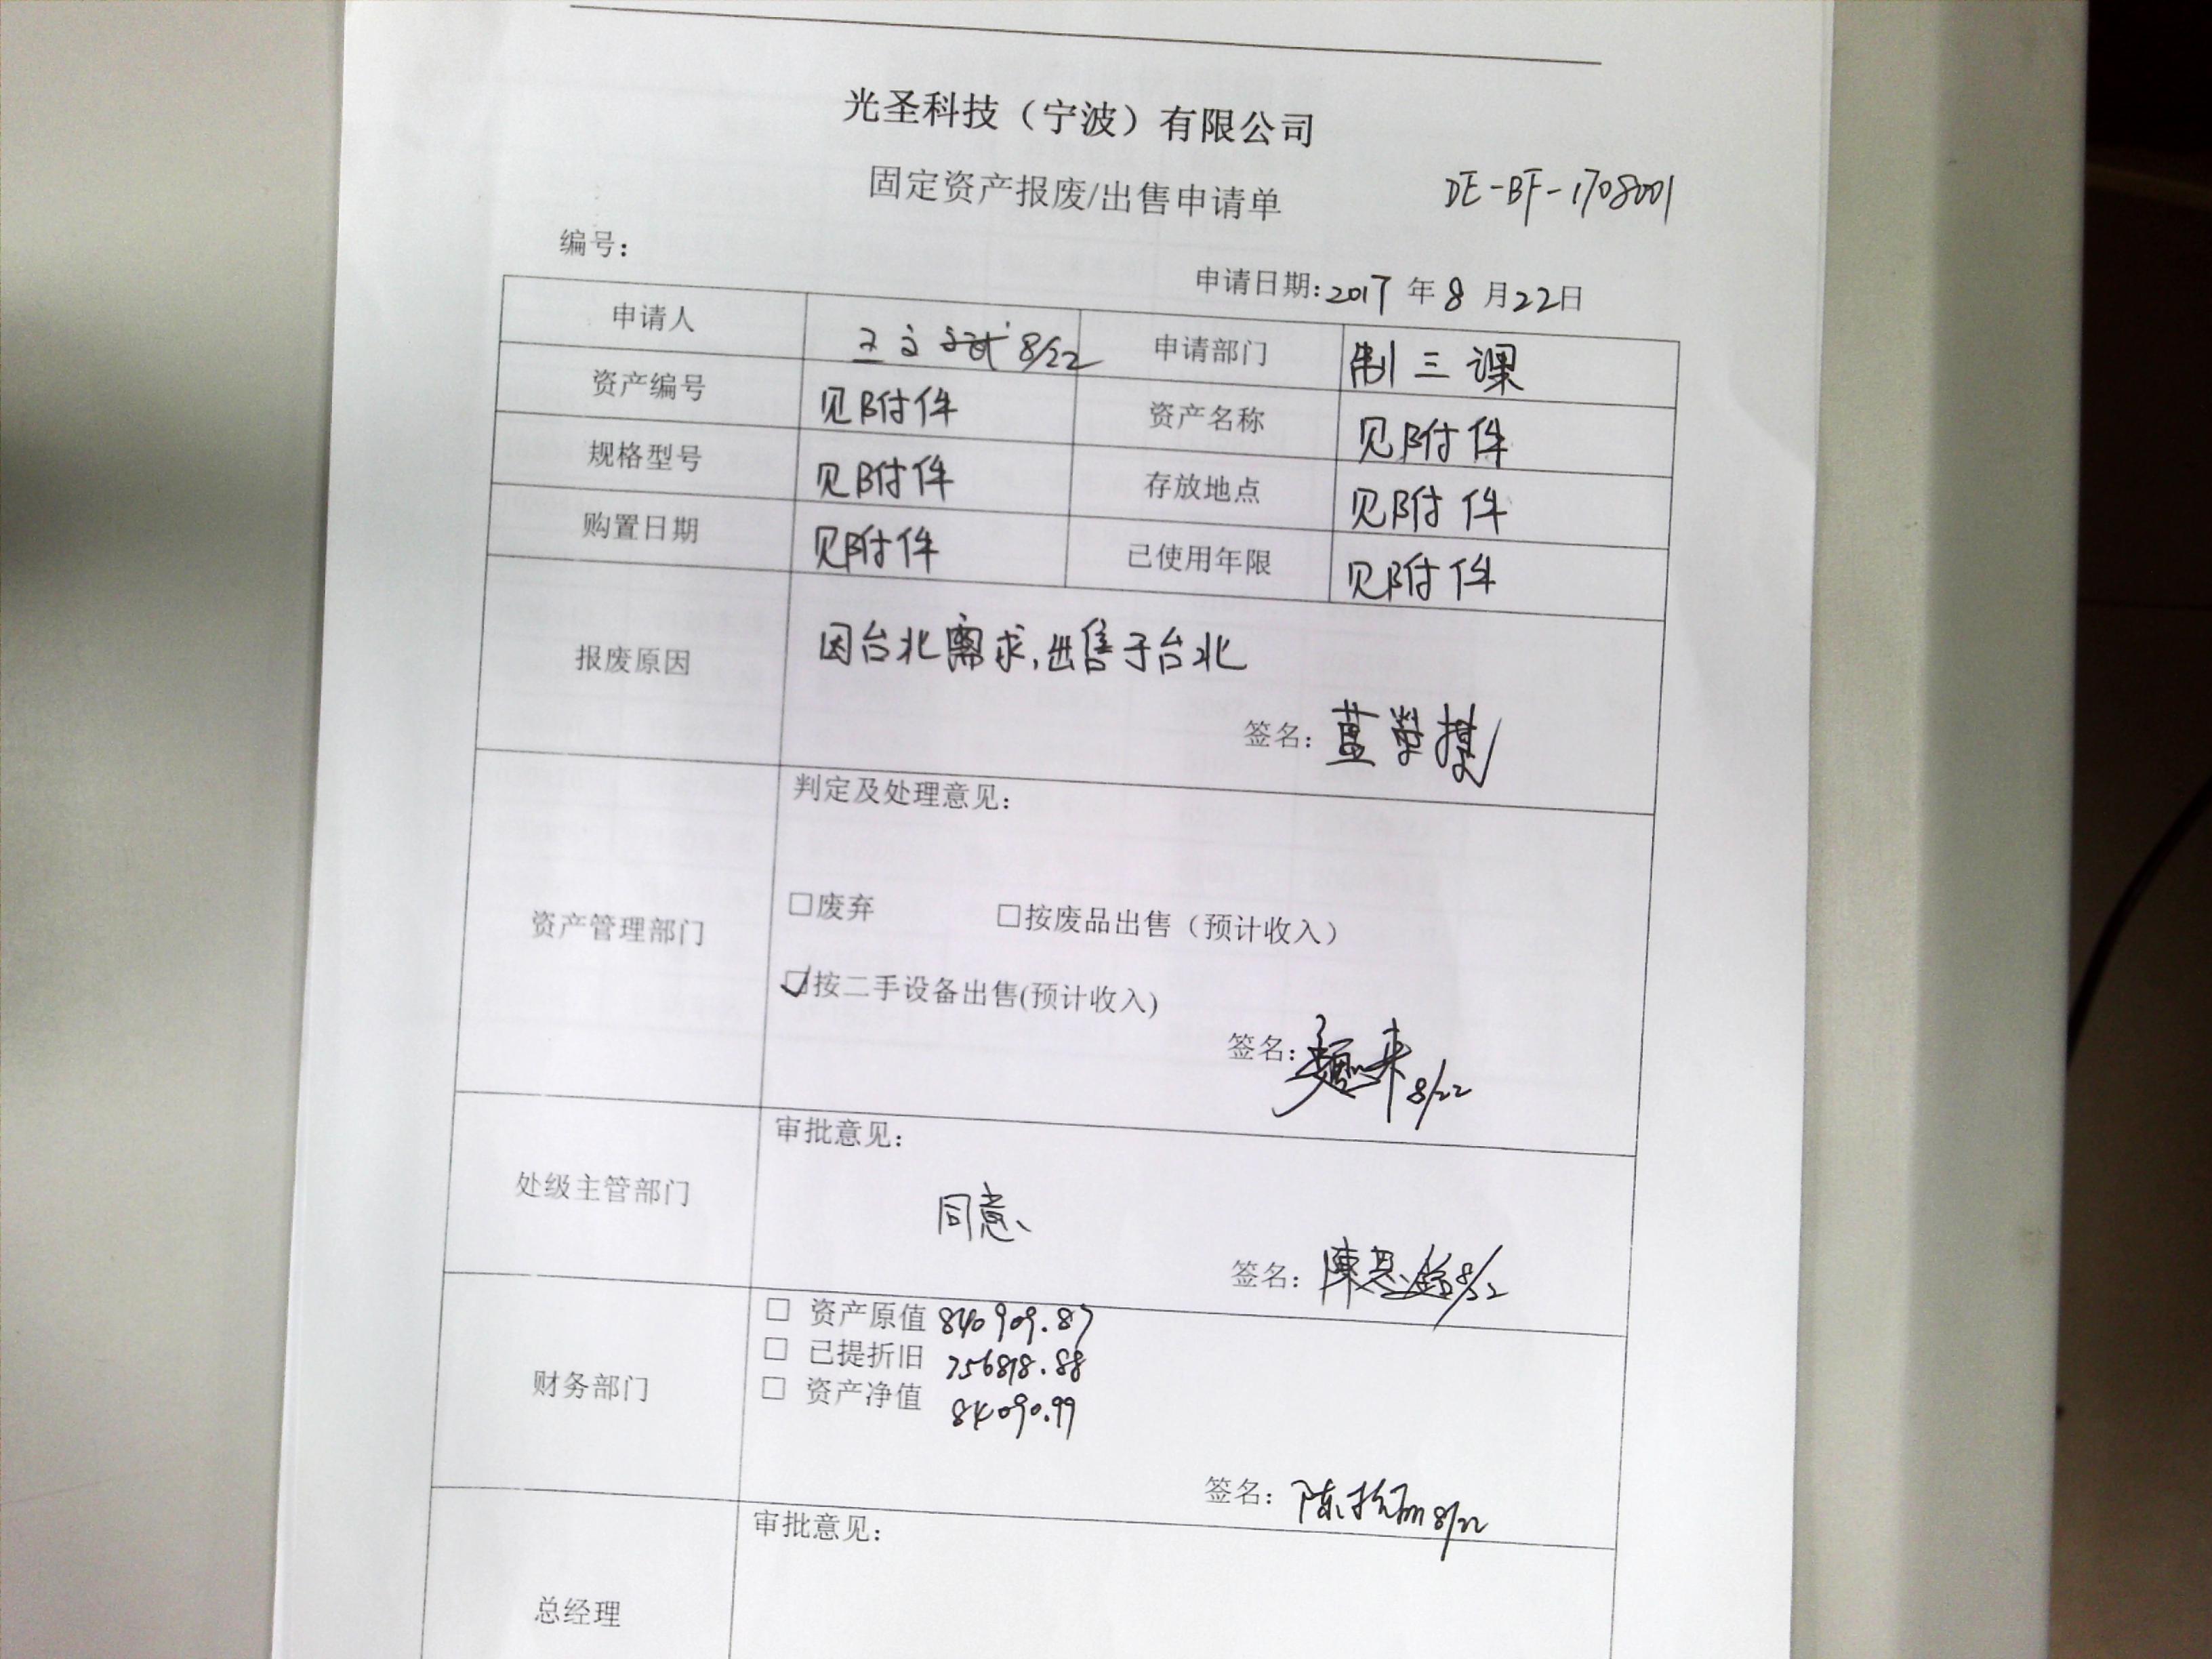 光圣科技（宁波）有限公司
固定资产报废/出售申请单
DE-BF-1708001
编号：
申请日期：2017 年 8 月 22 日
申请人 8/22 申请部门 制三课
资产编号 见附件 资产名称 见附件
规格型号 见附件 存放地点 见附件
购置日期 见附件 已使用年限 见附件
报废原因 因台北需求，出售于台北
签名：
判定及处理意见：
资产管理部门
□废弃 □按废品出售（预计收入）
☑按二手设备出售(预计收入)
签名： 8/22
审批意见：
处级主管部门
同意
签名： 8/22
财务部门
□ 资产原值 840909.87
□ 已提折旧 756818.88
□ 资产净值 84090.99
签名： 8/22
审批意见：
总经理